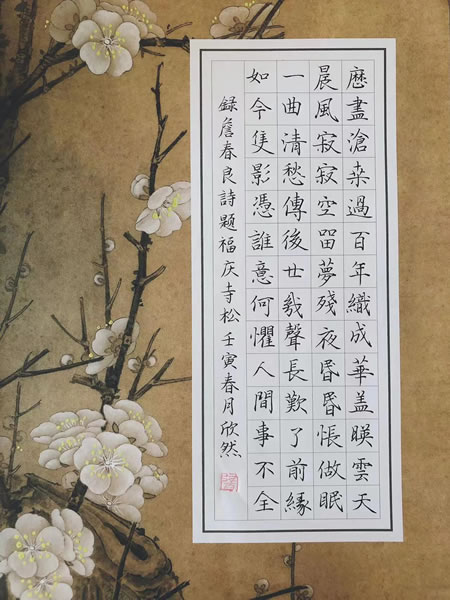 歷盡滄桒過百年織成華盖暎雲天
晨風寂寂空畱夢殘夜昏昏悵做眠
一曲清愁傳後世幾聲長歎了前緣
如今隻影憑誰意何懼人間事不全
録詹春良詩題福庆寺松壬寅春月欣然